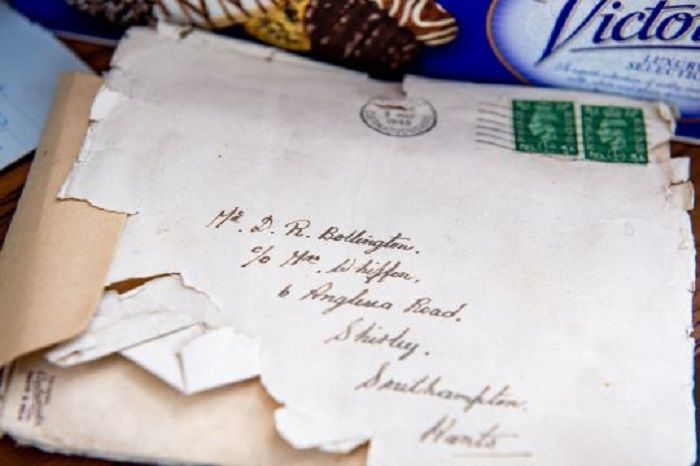 Victo
LUXURY
SELECTION
1948
Mr. D. R. Bollington.
c/o Mrs. Whiffen,
6 Anglesea Road.
Shirley.
Southampton.
Hants